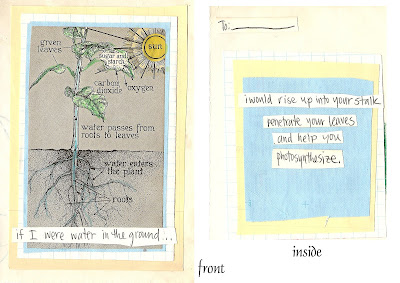 green
leaves
sun
sugar and
starch
carbon
dioxide
oxygen
water passes from
roots to leaves
water enters
the plant
roots
if I were water in the ground...
front
To:
i would rise up into your stalk
penetrate your leaves
and help you
photosynthesize.
inside